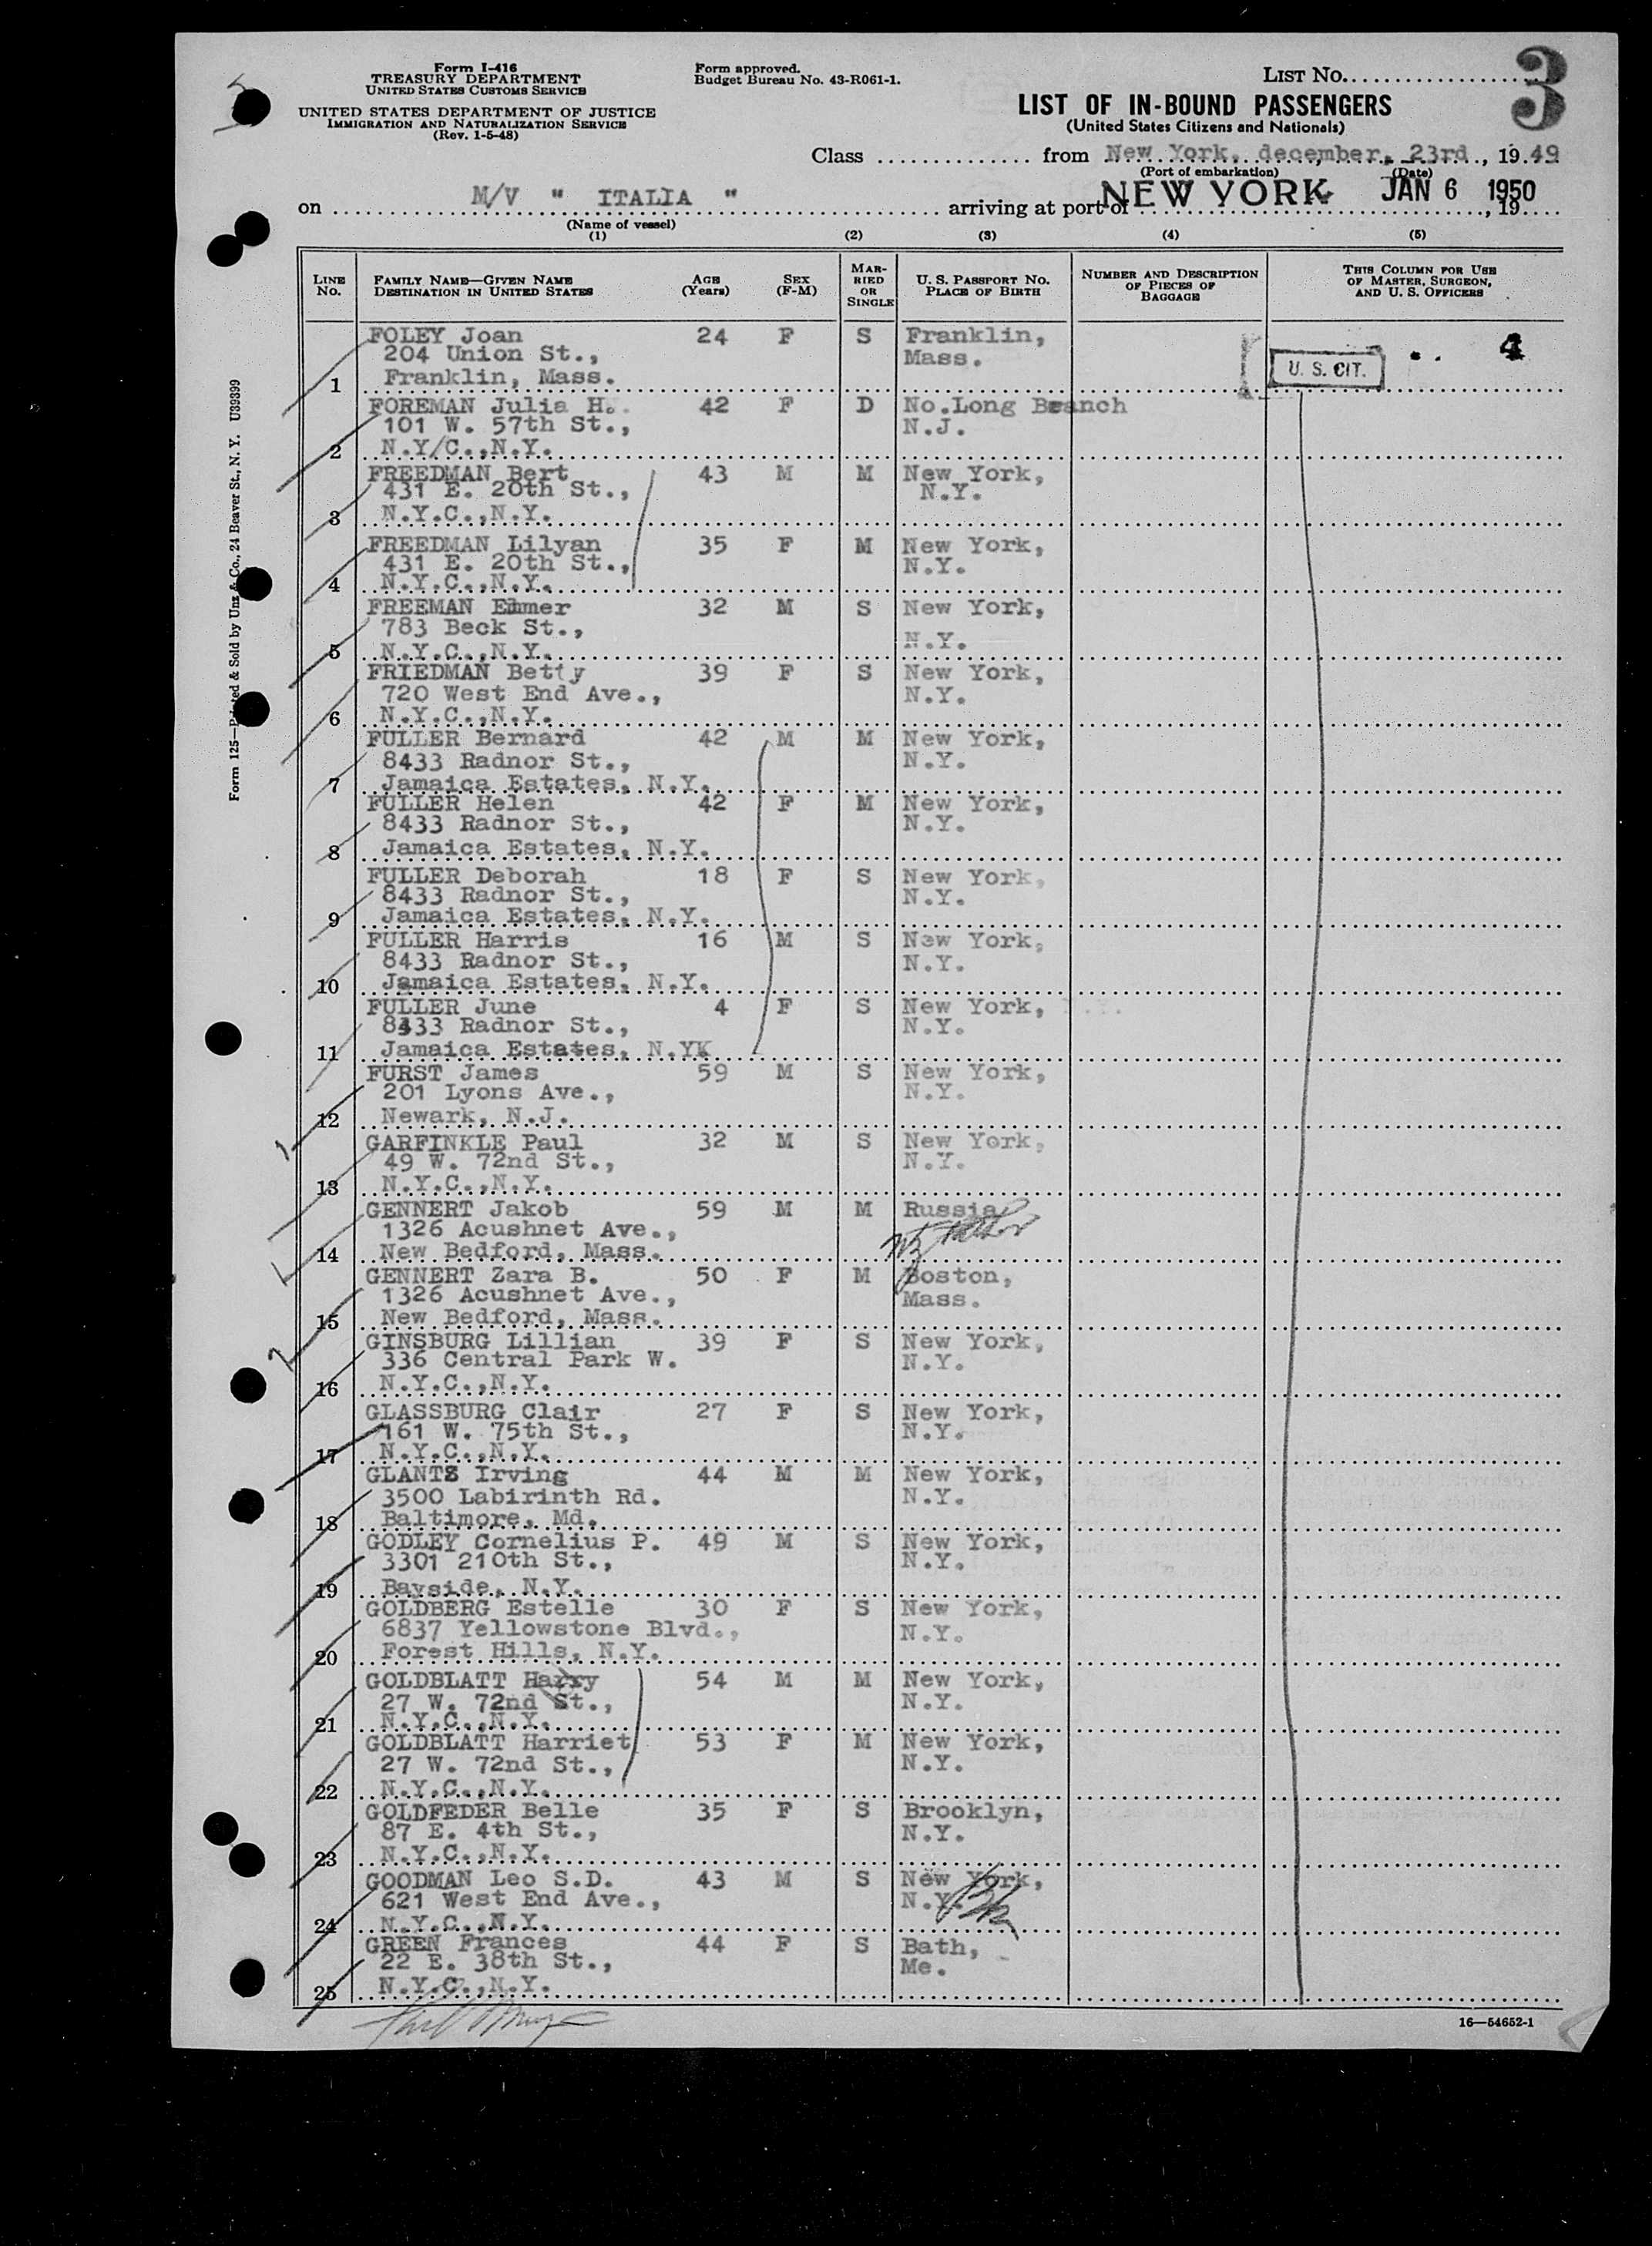 Form I-416
TREASURY DEPARTMENT
UNITED STATES CUSTOMS SERVICE
UNITED STATES DEPARTMENT OF JUSTICE
IMMIGRATION AND NATURALIZATION SERVICE
(Rev. 1-5-48)
Form approved.
Budget Bureau No. 43-R061-1.
LIST No. 3
LIST OF IN-BOUND PASSENGERS
(United States Citizens and Nationals)
Class from New York, december, 23rd, 19 49
(Port of embarkation) (Date)
on M/V " ITALIA " arriving at port of NEW YORK JAN 6 1950, 19
(Name of vessel)
(1) (2) (3) (4) (5)
LINE No. FAMILY NAME—GIVEN NAME DESTINATION IN UNITED STATES AGE (Years) SEX (F-M) MARRIED OR SINGLE U. S. PASSPORT NO. PLACE OF BIRTH NUMBER AND DESCRIPTION OF PIECES OF BAGGAGE THIS COLUMN FOR USE OF MASTER, SURGEON, AND U. S. OFFICERS
FOLEY Joan 24 F S Franklin, 4
204 Union St., Mass. U. S. CIT.
1 Franklin, Mass.
FOREMAN Julia H. 42 F D No.Long Branch
101 W. 57th St., N.J.
2 N.Y/C.,N.Y.
FREEDMAN Bert 43 M M New York,
431 E. 20th St., N.Y.
3 N.Y.C.,N.Y.
FREEDMAN Lilyan 35 F M New York,
431 E. 20th St., N.Y.
4 N.Y.C.,N.Y.
FREEMAN Elmer 32 M S New York,
783 Beck St., N.Y.
5 N.Y.C.,N.Y.
FRIEDMAN Betty 39 F S New York,
720 West End Ave., N.Y.
6 N.Y.C.,N.Y.
FULLER Bernard 42 M M New York,
8433 Radnor St., N.Y.
7 Jamaica Estates, N.Y.
FULLER Helen 42 F M New York,
8433 Radnor St., N.Y.
8 Jamaica Estates, N.Y.
FULLER Deborah 18 F S New York,
8433 Radnor St., N.Y.
9 Jamaica Estates, N.Y.
FULLER Harris 16 M S New York,
8433 Radnor St., N.Y.
10 Jamaica Estates, N.Y.
FULLER June 4 F S New York,
8433 Radnor St., N.Y.
11 Jamaica Estates, N.YK
FURST James 59 M S New York,
201 Lyons Ave., N.Y.
12 Newark, N.J.
GARFINKLE Paul 32 M S New York,
49 W. 72nd St., N.Y.
13 N.Y.C.,N.Y.
GENNERT Jakob 59 M M Russia
1326 Acushnet Ave.,
14 New Bedford, Mass.
GENNERT Zara B. 50 F M Boston,
1326 Acushnet Ave., Mass.
15 New Bedford, Mass.
GINSBURG Lillian 39 F S New York,
336 Central Park W. N.Y.
16 N.Y.C.,N.Y.
GLASSBURG Clair 27 F S New York,
161 W. 75th St., N.Y.
17 N.Y.C.,N.Y.
GLANTZ Irving 44 M M New York,
3500 Labirinth Rd. N.Y.
18 Baltimore, Md.
GODLEY Cornelius P. 49 M S New York,
3301 210th St., N.Y.
19 Bayside, N.Y.
GOLDBERG Estelle 30 F S New York,
6837 Yellowstone Blvd., N.Y.
20 Forest Hills, N.Y.
GOLDBLATT Harry 54 M M New York,
27 W. 72nd St., N.Y.
21 N.Y.C.,N.Y.
GOLDBLATT Harriet 53 F M New York,
27 W. 72nd St., N.Y.
22 N.Y.C.,N.Y.
GOLDFEDER Belle 35 F S Brooklyn,
87 E. 4th St., N.Y.
23 N.Y.C.,N.Y.
GOODMAN Leo S.D. 43 M S New York,
621 West End Ave., N.Y.
24 N.Y.C.,N.Y.
GREEN Frances 44 F S Bath,
22 E. 38th St., Me.
25 N.Y.C.,N.Y.
16—54652-1
Form 125—Printed & Sold by Unz & Co., 24 Beaver St., N. Y. U39399